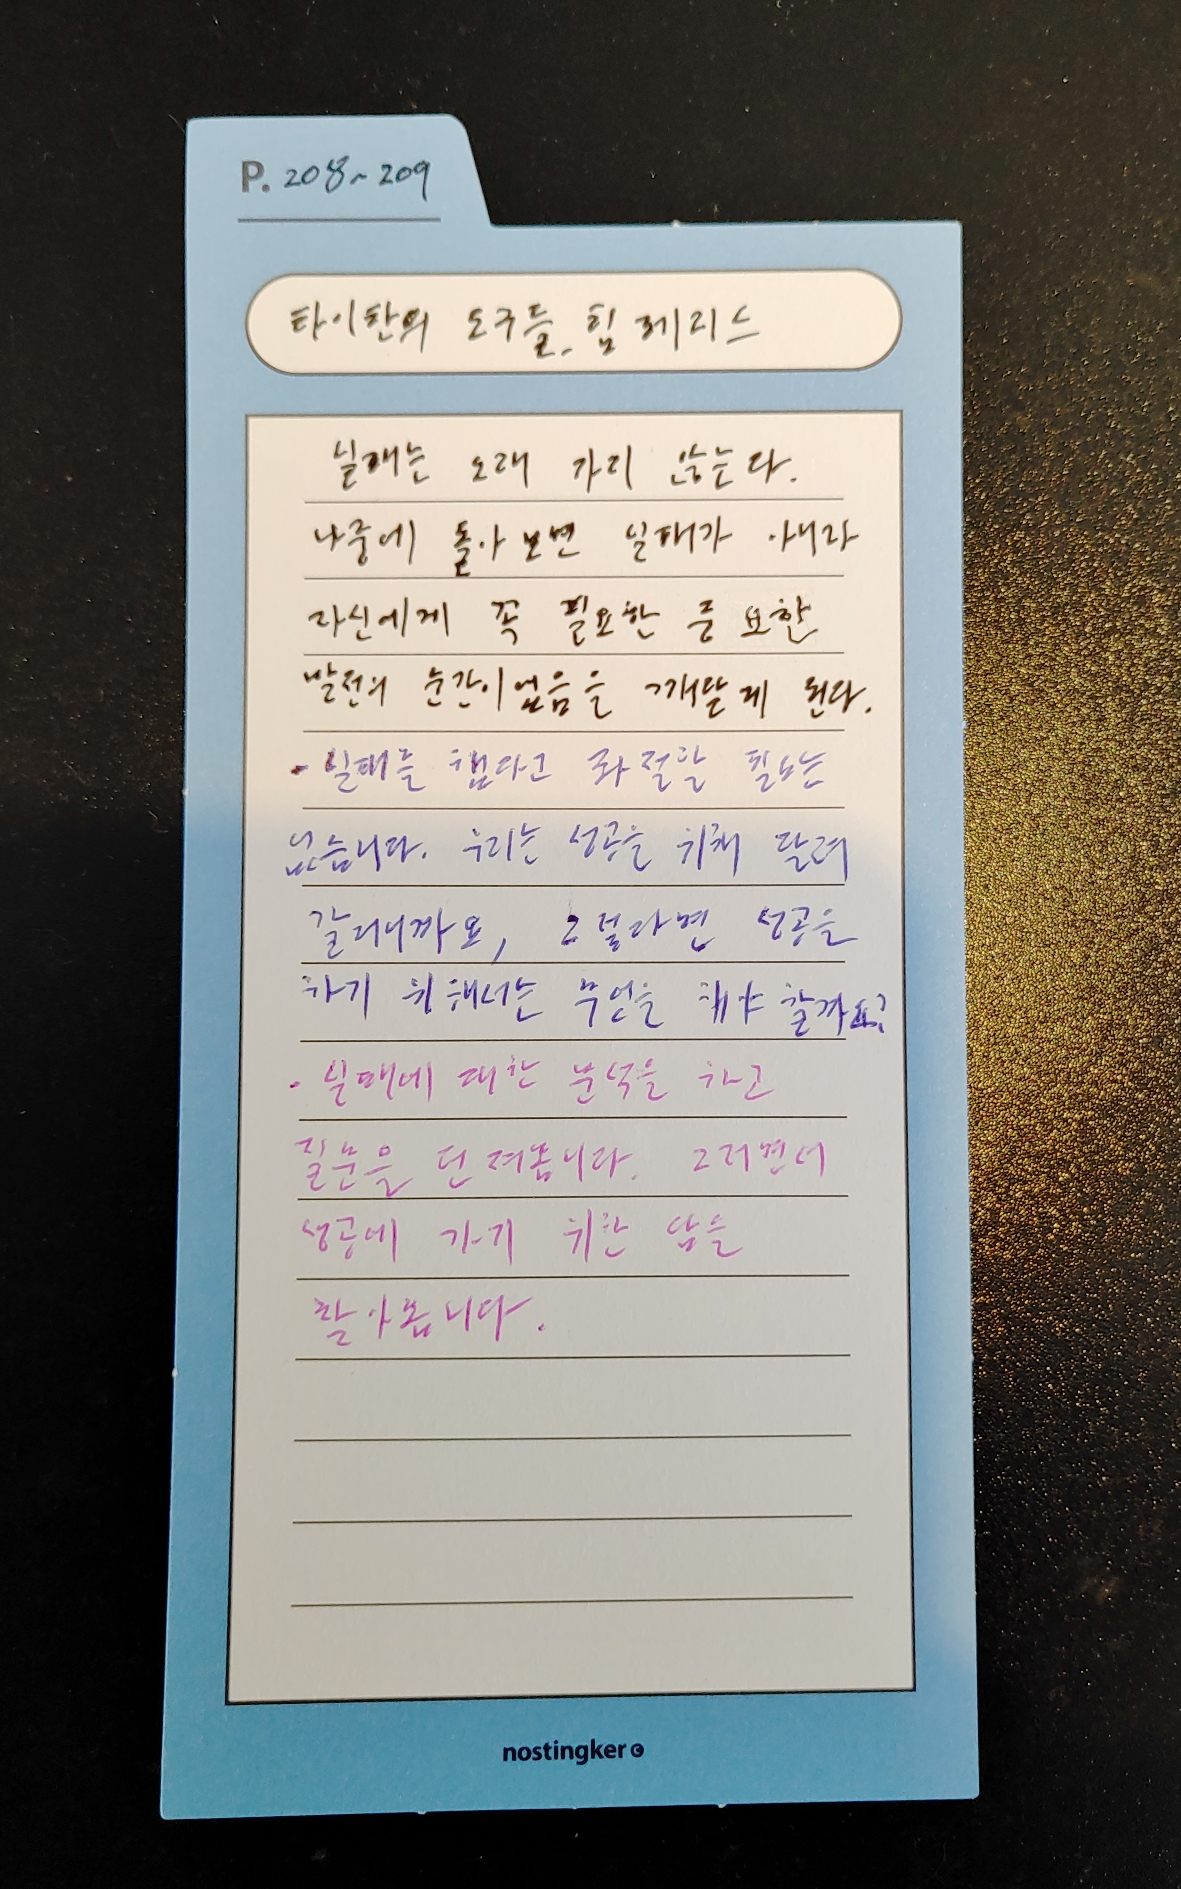 P. 208~209
타이탄의 도구들. 팀 페리스
실패는 오래 가지 않는다.
나중에 돌아보면 실패가 아니라
자신에게 꼭 필요한 중요한
발전의 순간이었음을 깨닫게 된다.
· 실패를 했다고 좌절할 필요는
없습니다. 우리는 성공을 위해 달려
갈거니까요, 그렇다면 성공을
하기 위해서는 무엇을 해야 할까요?
· 실패에 대한 분석을 하고
질문을 던져봅니다. 그러면서
성공에 가기 위한 답을
찾아봅니다.
nostingker